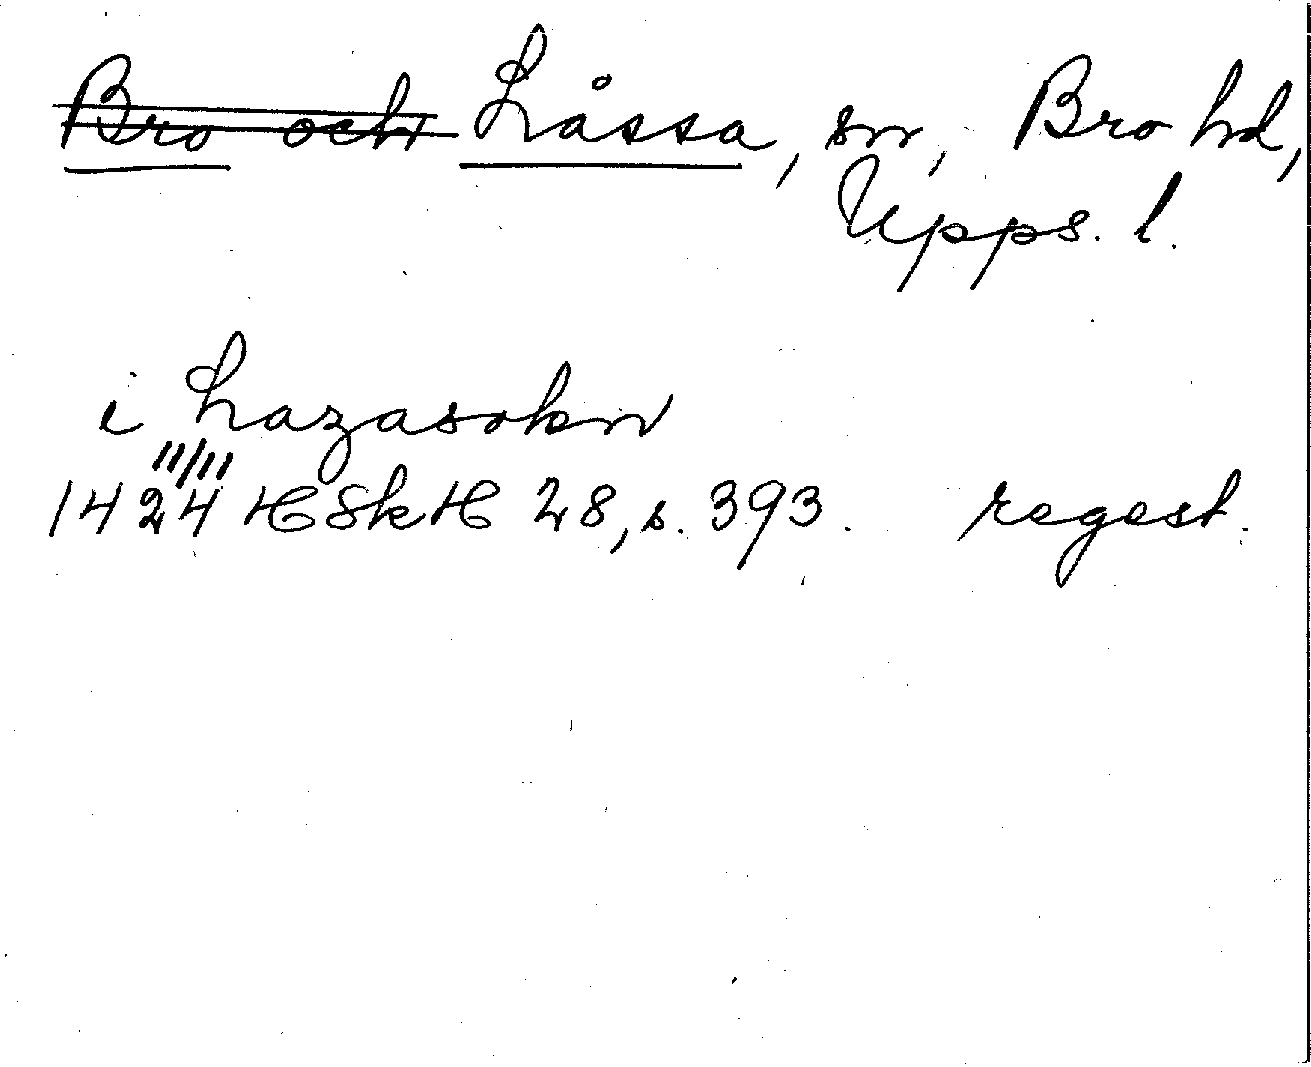 ~~Bro och~~ Låssa, sn, Bro hd,
Upps. l.
i Lazasokn
11/11
1424 HSkH 28, s. 393. regest.